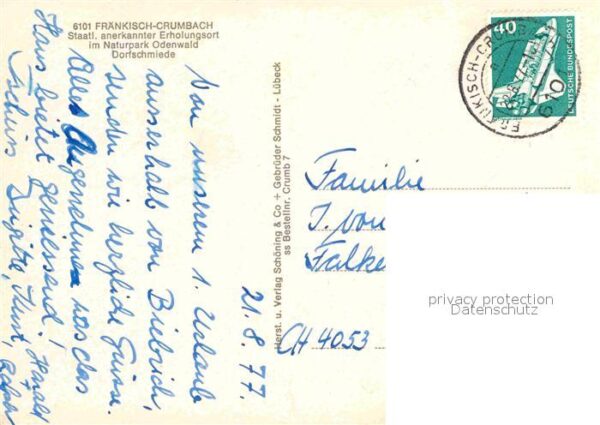 6101 FRÄNKISCH-CRUMBACH
Staatl. anerkannter Erholungsort
im Naturpark Odenwald
Dorfschmiede
21.8.77.
Von unserem 1. Urlaub
ausserhalb von Biebrich,
senden wir herzliche Grüsse.
Alles Angenehme was das
Haus bietet geniessend!
Brigitte, Horst, Harald
Herst. u. Verlag Schöning & Co + Gebrüder Schmidt - Lübeck
ss Bestellnr. Crumb 7
40
DEUTSCHE BUNDESPOST
FRÄNKISCH-CRUMBACH
610
Familie
J. von
Falke
CH 4053
privacy protection
Datenschutz